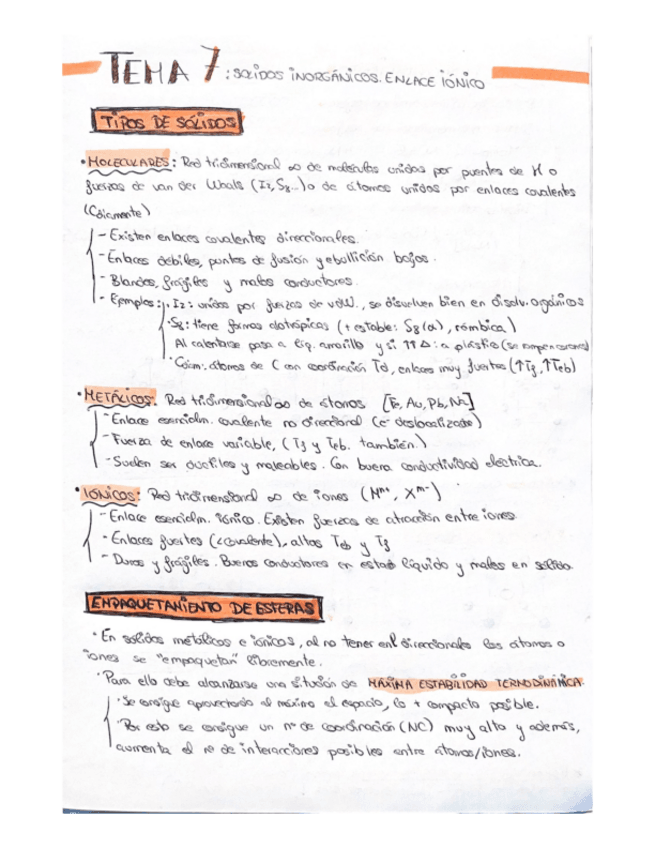 TEMA 7: SÓLIDOS INORGÁNICOS. ENLACE IÓNICO
TIPOS DE SÓLIDOS
• MOLECULARES: Red tridimensional ∞ de moléculas unidas por puentes de H o
fuerzas de van der Waals (I₂, S₈...) o de átomos unidos por enlaces covalentes
(Cdiamante)
- Existen enlaces covalentes direccionales.
- Enlaces débiles, puntos de fusión y ebullición bajos.
- Blandos, frágiles y malos conductores.
- Ejemplos: · I₂: unidas por fuerzas de vdW., se disuelven bien en disolv. orgánicos
· S₈: tiene formas alotrópicas (+ estable: S₈(α), rómbica)
Al calentarse pasa a líq. amarillo y si ↑↑ Δ: a plástico (se rompen)
· Cdiam: átomos de C con coordinación Td, enlaces muy fuertes (↑Tf, ↑Teb)
• METÁLICOS: Red tridimensional ∞ de átomos [Fe, Au, Pb, Na]
- Enlace esencialm. covalente no direccional (e⁻ deslocalizado)
- Fuerza de enlace variable, (Tf y Teb. también.)
- Suelen ser dúctiles y maleables. Con buena conductividad eléctrica.
• IÓNICOS: Red tridimensional ∞ de iones (Mⁿ⁺, Xᵐ⁻)
- Enlace esencialm. iónico. Existen fuerzas de atracción entre iones
- Enlaces fuertes (<covalente), altos Teb y Tf
- Duros y frágiles. Buenos conductores en estado líquido y malos en sólido.
EMPAQUETAMIENTO DE ESFERAS
· En sólidos metálicos e iónicos, al no tener enl direccionales los átomos o
iones se "empaquetan" libremente.
· Para ello debe alcanzarse una situción de MÁXIMA ESTABILIDAD TERMODINÁMICA.
· Se consigue aprovechando al máximo el espacio, lo + compacto posible.
· Por esto se consigue un nº de coordinación (NC) muy alto y además,
aumenta el nº de interacciones posibles entre átomos/iones.